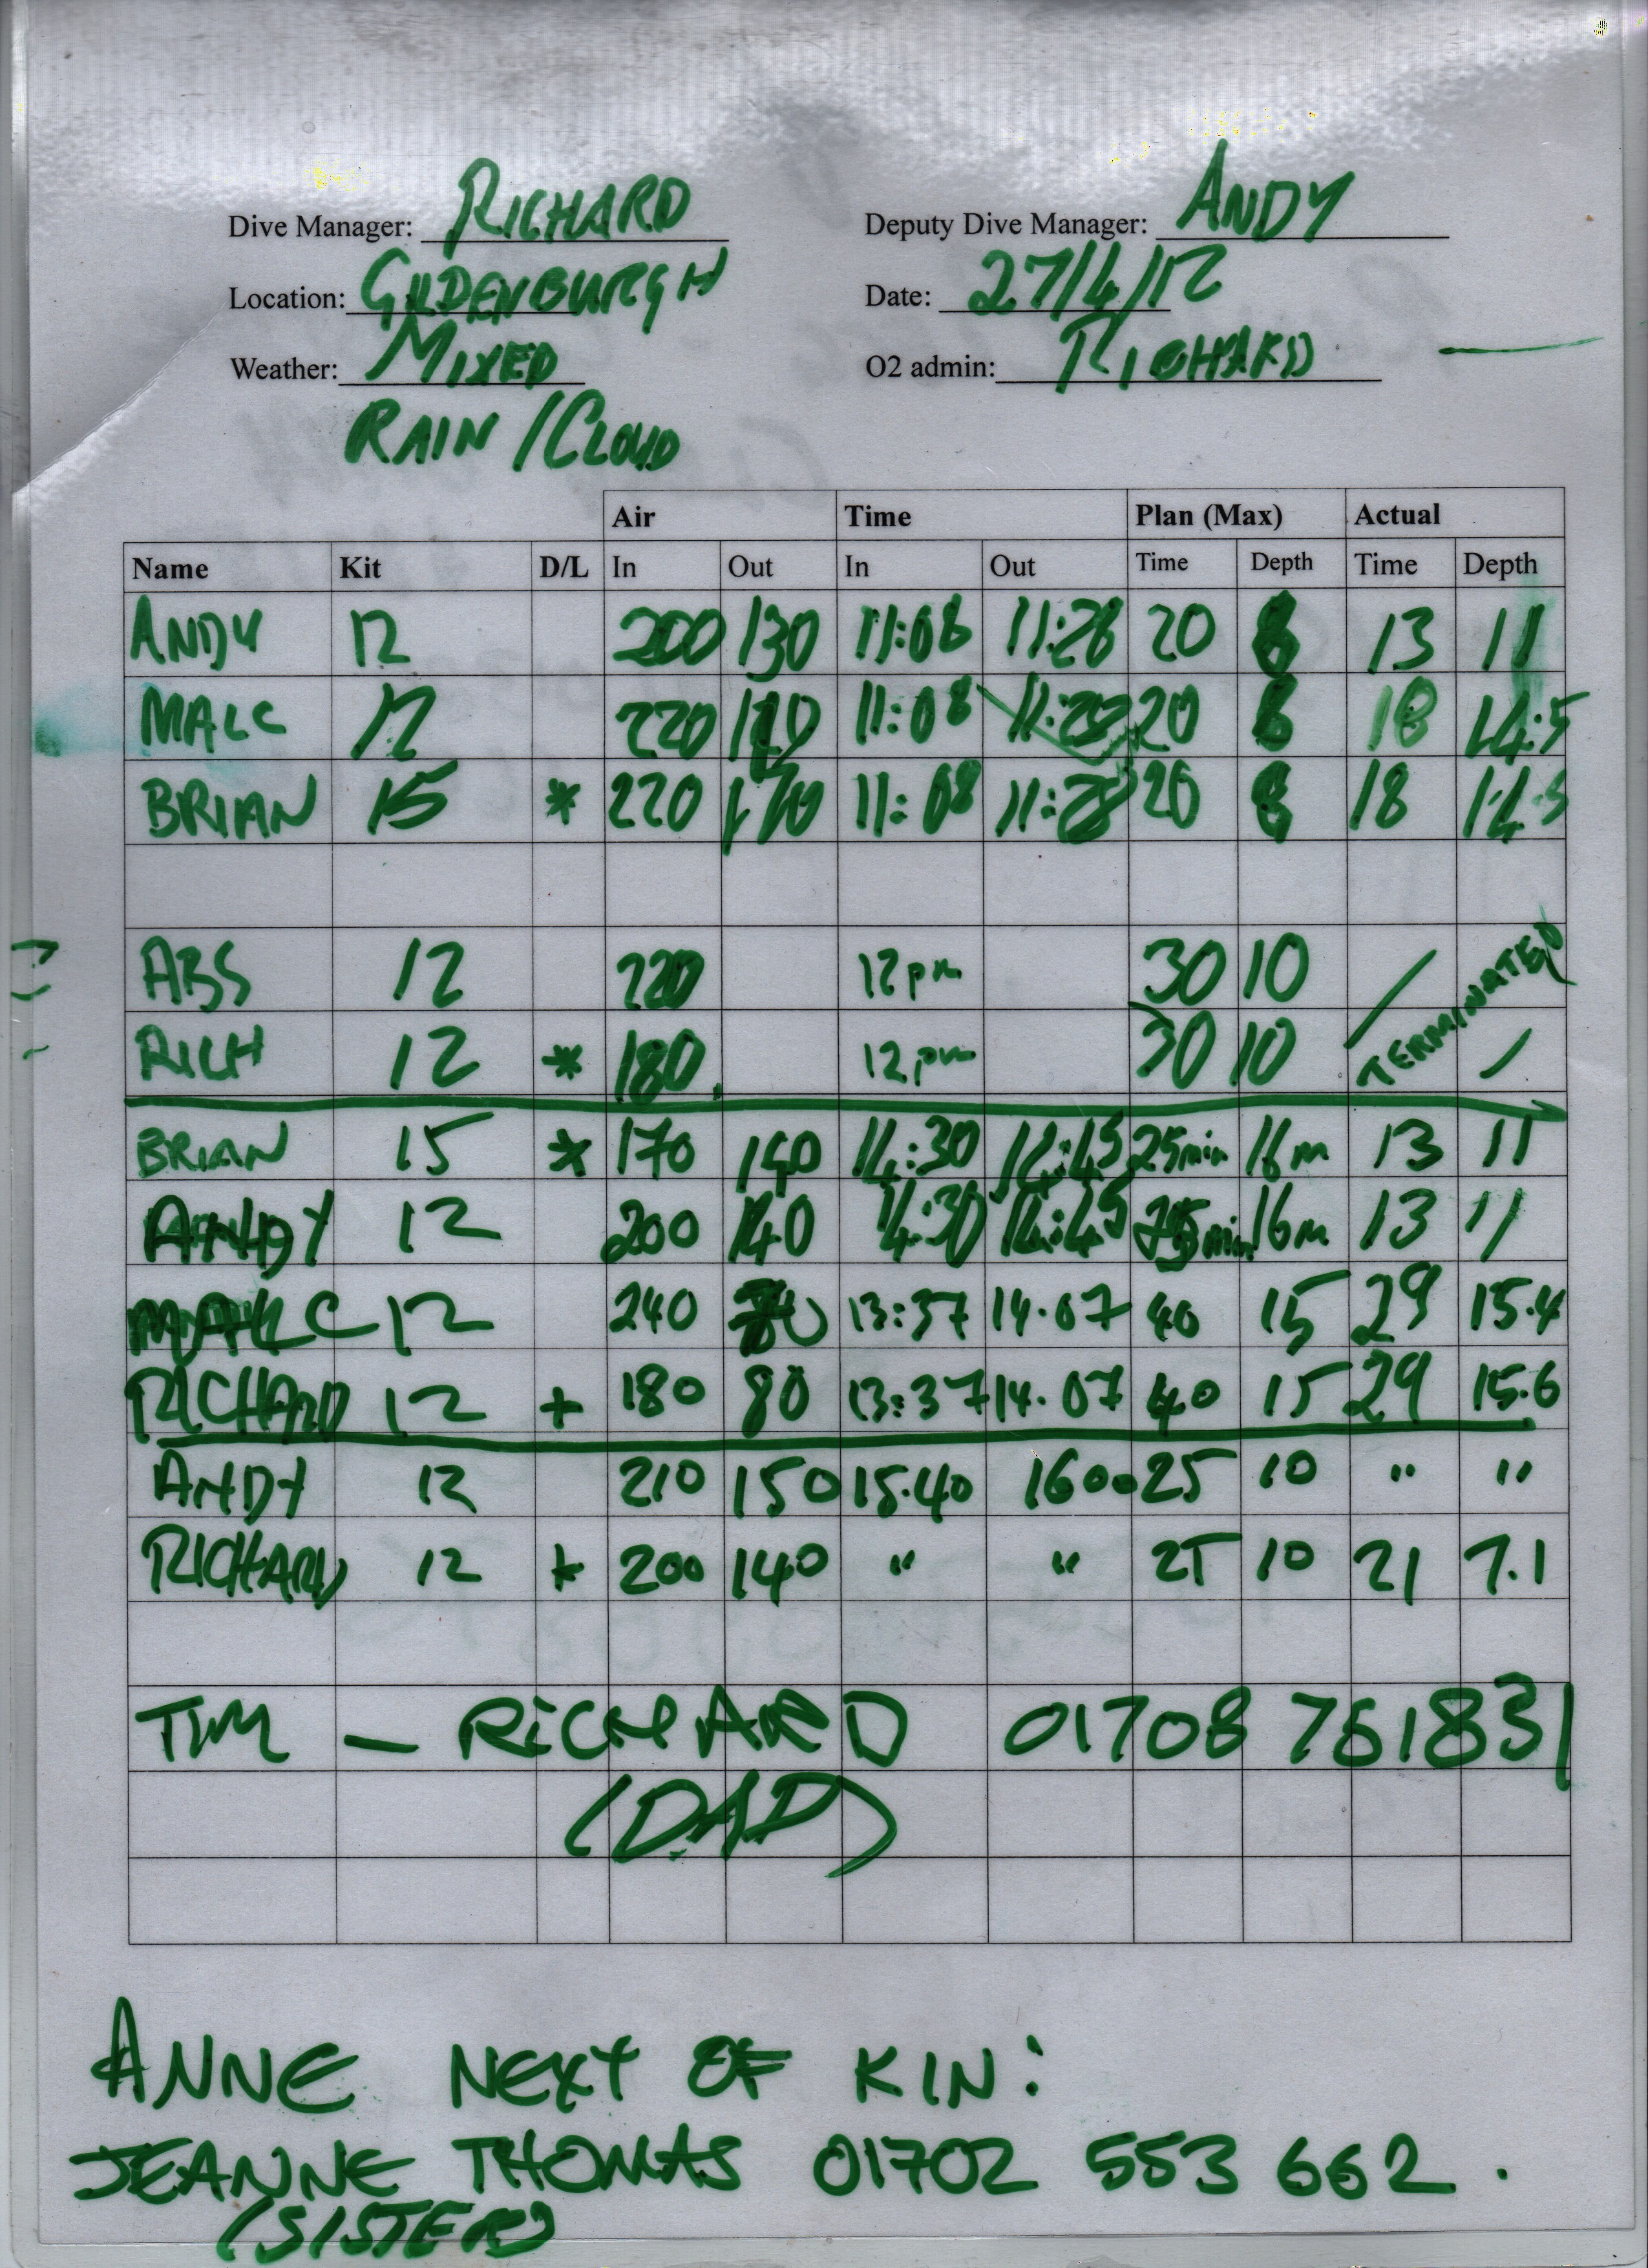 Dive Manager: RICHARD Deputy Dive Manager: ANDY
Location: GILDENBURGH Date: 27/4/12
Weather: MIXED O2 admin: RICHARD
RAIN / CLOUD
Air Time Plan (Max) Actual
Name Kit D/L In Out In Out Time Depth Time Depth
ANDY 12 200 130 11:08 11:28 20 8 13 11
MALC 12 220 11:08 20 8 18 14.5
BRIAN 15 * 220 170 11:08 11:28 20 8 18 14.5
ABS 12 220 12pm 30 10 /
RICH 12 * 180 12pm 30 10 TERMINATED /
BRIAN 15 * 170 140 14:30 14:45 25min 16m 13 11
ANDY 12 200 140 14:30 14:45 25min 16m 13 11
MALC 12 240 13:37 14.07 40 15 29 15.4
RICHARD 12 + 180 80 13:37 14.07 40 15 29 15.6
ANDY 12 210 150 15.40 1600 25 10 " "
RICHARD 12 * 200 140 " " 25 10 21 7.1
TIM — RICHARD 01708 761831
(DAD)
ANNE NEXT OF KIN:
JEANNE THOMAS 01702 553 662.
(SISTER)